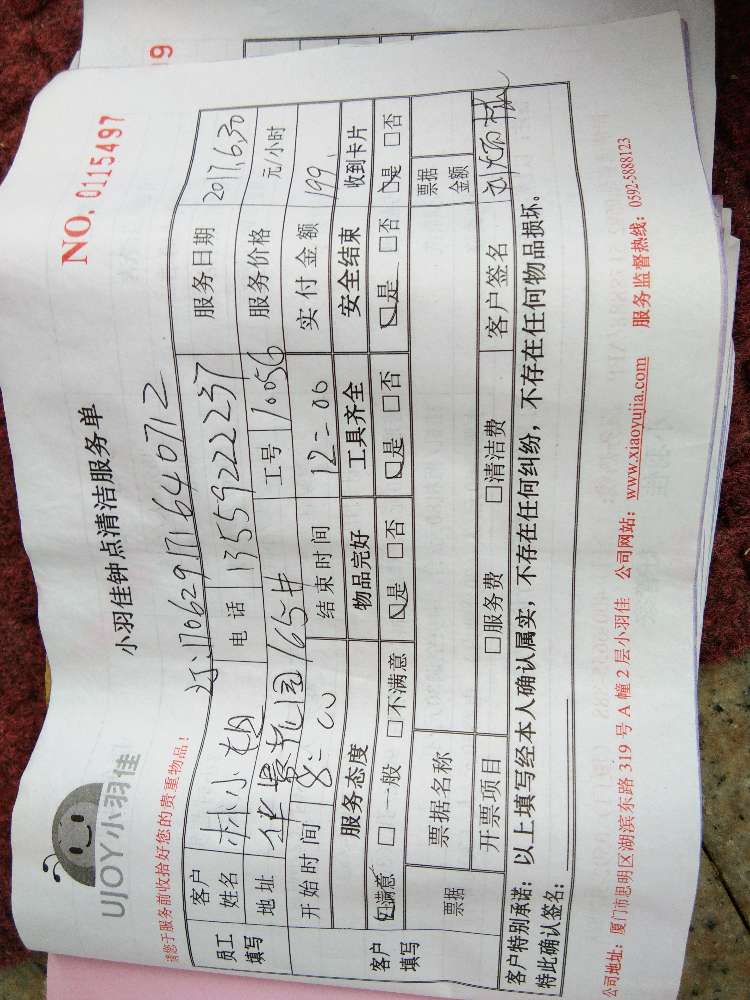 UJOY小羽佳
小羽佳钟点清洁服务单
NO. 0115497
请您于服务前收拾好您的贵重物品!
170629171640712
员工填写 客户姓名 林小姐 电话 13559222237 服务日期 2017.6.30
地址 华景花园165# 工号 1005G 服务价格 元/小时
开始时间 8:00 结束时间 12:00 实付金额 199.
客户填写 服务态度 物品完好 工具齐全 安全结束 收到卡片
☑满意 □一般 □不满意 ☑是 □否 ☑是 □否 ☑是 □否 ☑是 □否
票据 票据名称 票据金额
开票项目 □服务费 □清洁费 客户签名
客户特别承诺:以上填写经本人确认属实,不存在任何纠纷,不存在任何物品损坏。
特此确认签名:
公司地址:厦门市思明区湖滨东路 319 号 A 幢 2 层小羽佳 公司网站:www.xiaoyujia.com 服务监督热线:0592-5888123